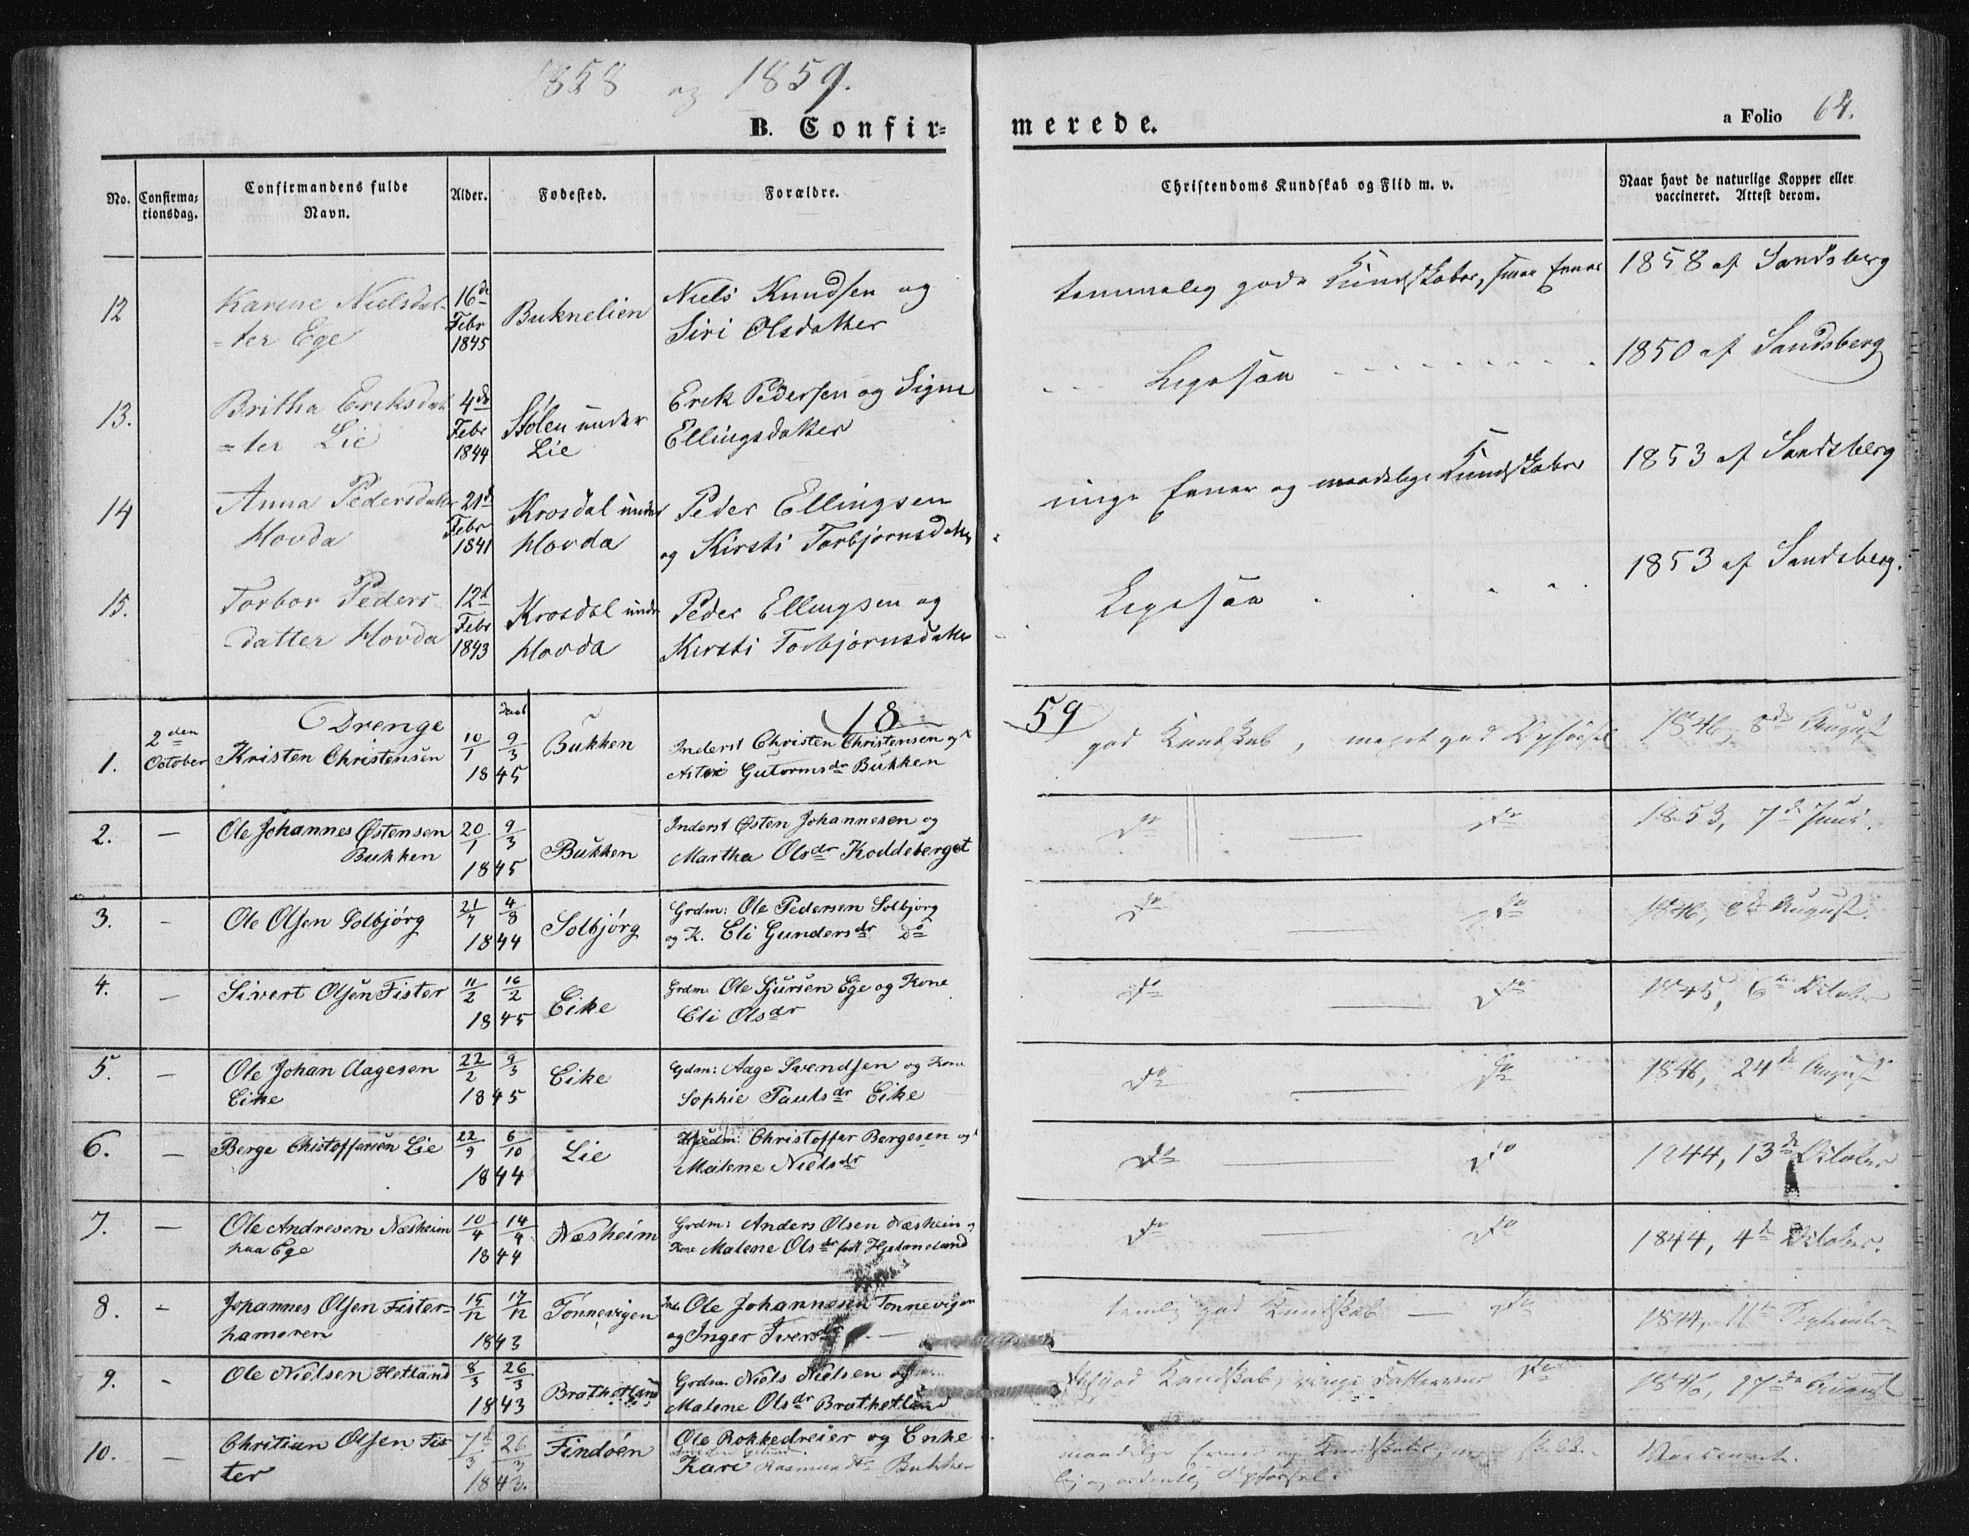 1858 og 1859.
B. Confirmerede.
a Folio 64.
No.
Confirma-
tionsdag.
Confirmandens fulde
Navn.
Alder.
Fødested.
Forældre.
Christendoms Kundskab og Flid m. v.
Naar havt de naturlige Kopper eller
vaccineret. Attest derom.
12
Karine Nielsdat-
=ter Ege
16de
Febr
1845
Buknelien
Niels Knudsen og
Siri Olsdatter
temmelig gode Kundskaber, smaa Evner
1858 af Sandsberg
13.
Britha Eriksdat
=ter Lie
4de
Febr
1844
Stølen under
Lie
Erik Pedersen og Signe
Ellingsdatter
Ligesaa
1850 af Sandsberg
14
Anna Pedersdatter
Hovda
21d
Febr
1841
Krosdal under
Hovda
Peder Ellingsen
og Kirsti Torbjørnsdatter
ringe Evner og maadelige Kundskaber
1853 af Sandsberg
15.
Torbor Peders-
datter Hovda
12d
Febr
1843
Krosdal unde
Hovda
Peder Ellingsen og
Kirsti Torbjørnsdatter
Ligesaa
1853 af Sandsberg.
1859
Drenge
1.
2den
October
Kristen Christensen
10/1 9/3
1845
Bukken
Inderst Christen Christensen og
Astri Gutormsdr Bukken
god Kundskab, meget god Opførsel
1846, 8de August
2.
—
Ole Johannes Østensen
Bukken
20/1 9/3
1845
Bukken
Inderst Østen Johannesen og
Martha Olsdr Koddeberget
do — do
1853, 7de Juni.
3.
—
Ole Olsen Solbjørg
21/7 4/8
1844
Solbjørg
Grdm: Ole Pedersen Solbjørg
og K. Eli Gundersdr do
do do
1846, 8de August.
4.
—
Sivert Olsen Fister
11/2 16/2
1845
Eike
Grdm. Ole Sjursen Ege og Kone
Eli Olsdr
do — do
1845, 6te October
5.
—
Ole Johan Aagesen
Eike
22/2 9/3
1845
Eike
Grdm: Aage Svendsen og Kone
Sophie Paulsdr Eike
do — do
1846, 24de August
6.
—
Berge Chistoffersen Lie
22/9 6/10
1844
Lie
Christoffer Bergesen og
Malene Nielsdr
do do
1844, 13de October
7.
—
Ole Andresen Næsheim
paa Ege
10/4 14/4
1844
Næsheim
Grdm: Anders Olsen Næsheim og
Kone Malene Olsdr født Hjelmeland
do — do
1844, 4de October.
8.
-
Johannes Olsen Fister-
hameren
15/12 17/12
1843
Tønnevigen
Inds. Ole Johannesen Tonnevigen
og Inger Iversdr
temlig god Kundskab — do
1844, 11te September
9.
-
Ole Nielsen Hetland
8/3 26/3
1843
Brathetland
Grdm. Niels Nielsen og
Malene Olsdr Brathetland
god Kundskab, ringe Fatteevne do
1846, 17de August
10.
—
Christian Olsen Fis
ter
7d/3 26/3
1843.
Findøen
Ole Rokkedreier og Enke
Kari Rasmusdtr Bukken
maadelige Evner og Kundskaber,
og ordentlig Opførsel.
Vaccineret.